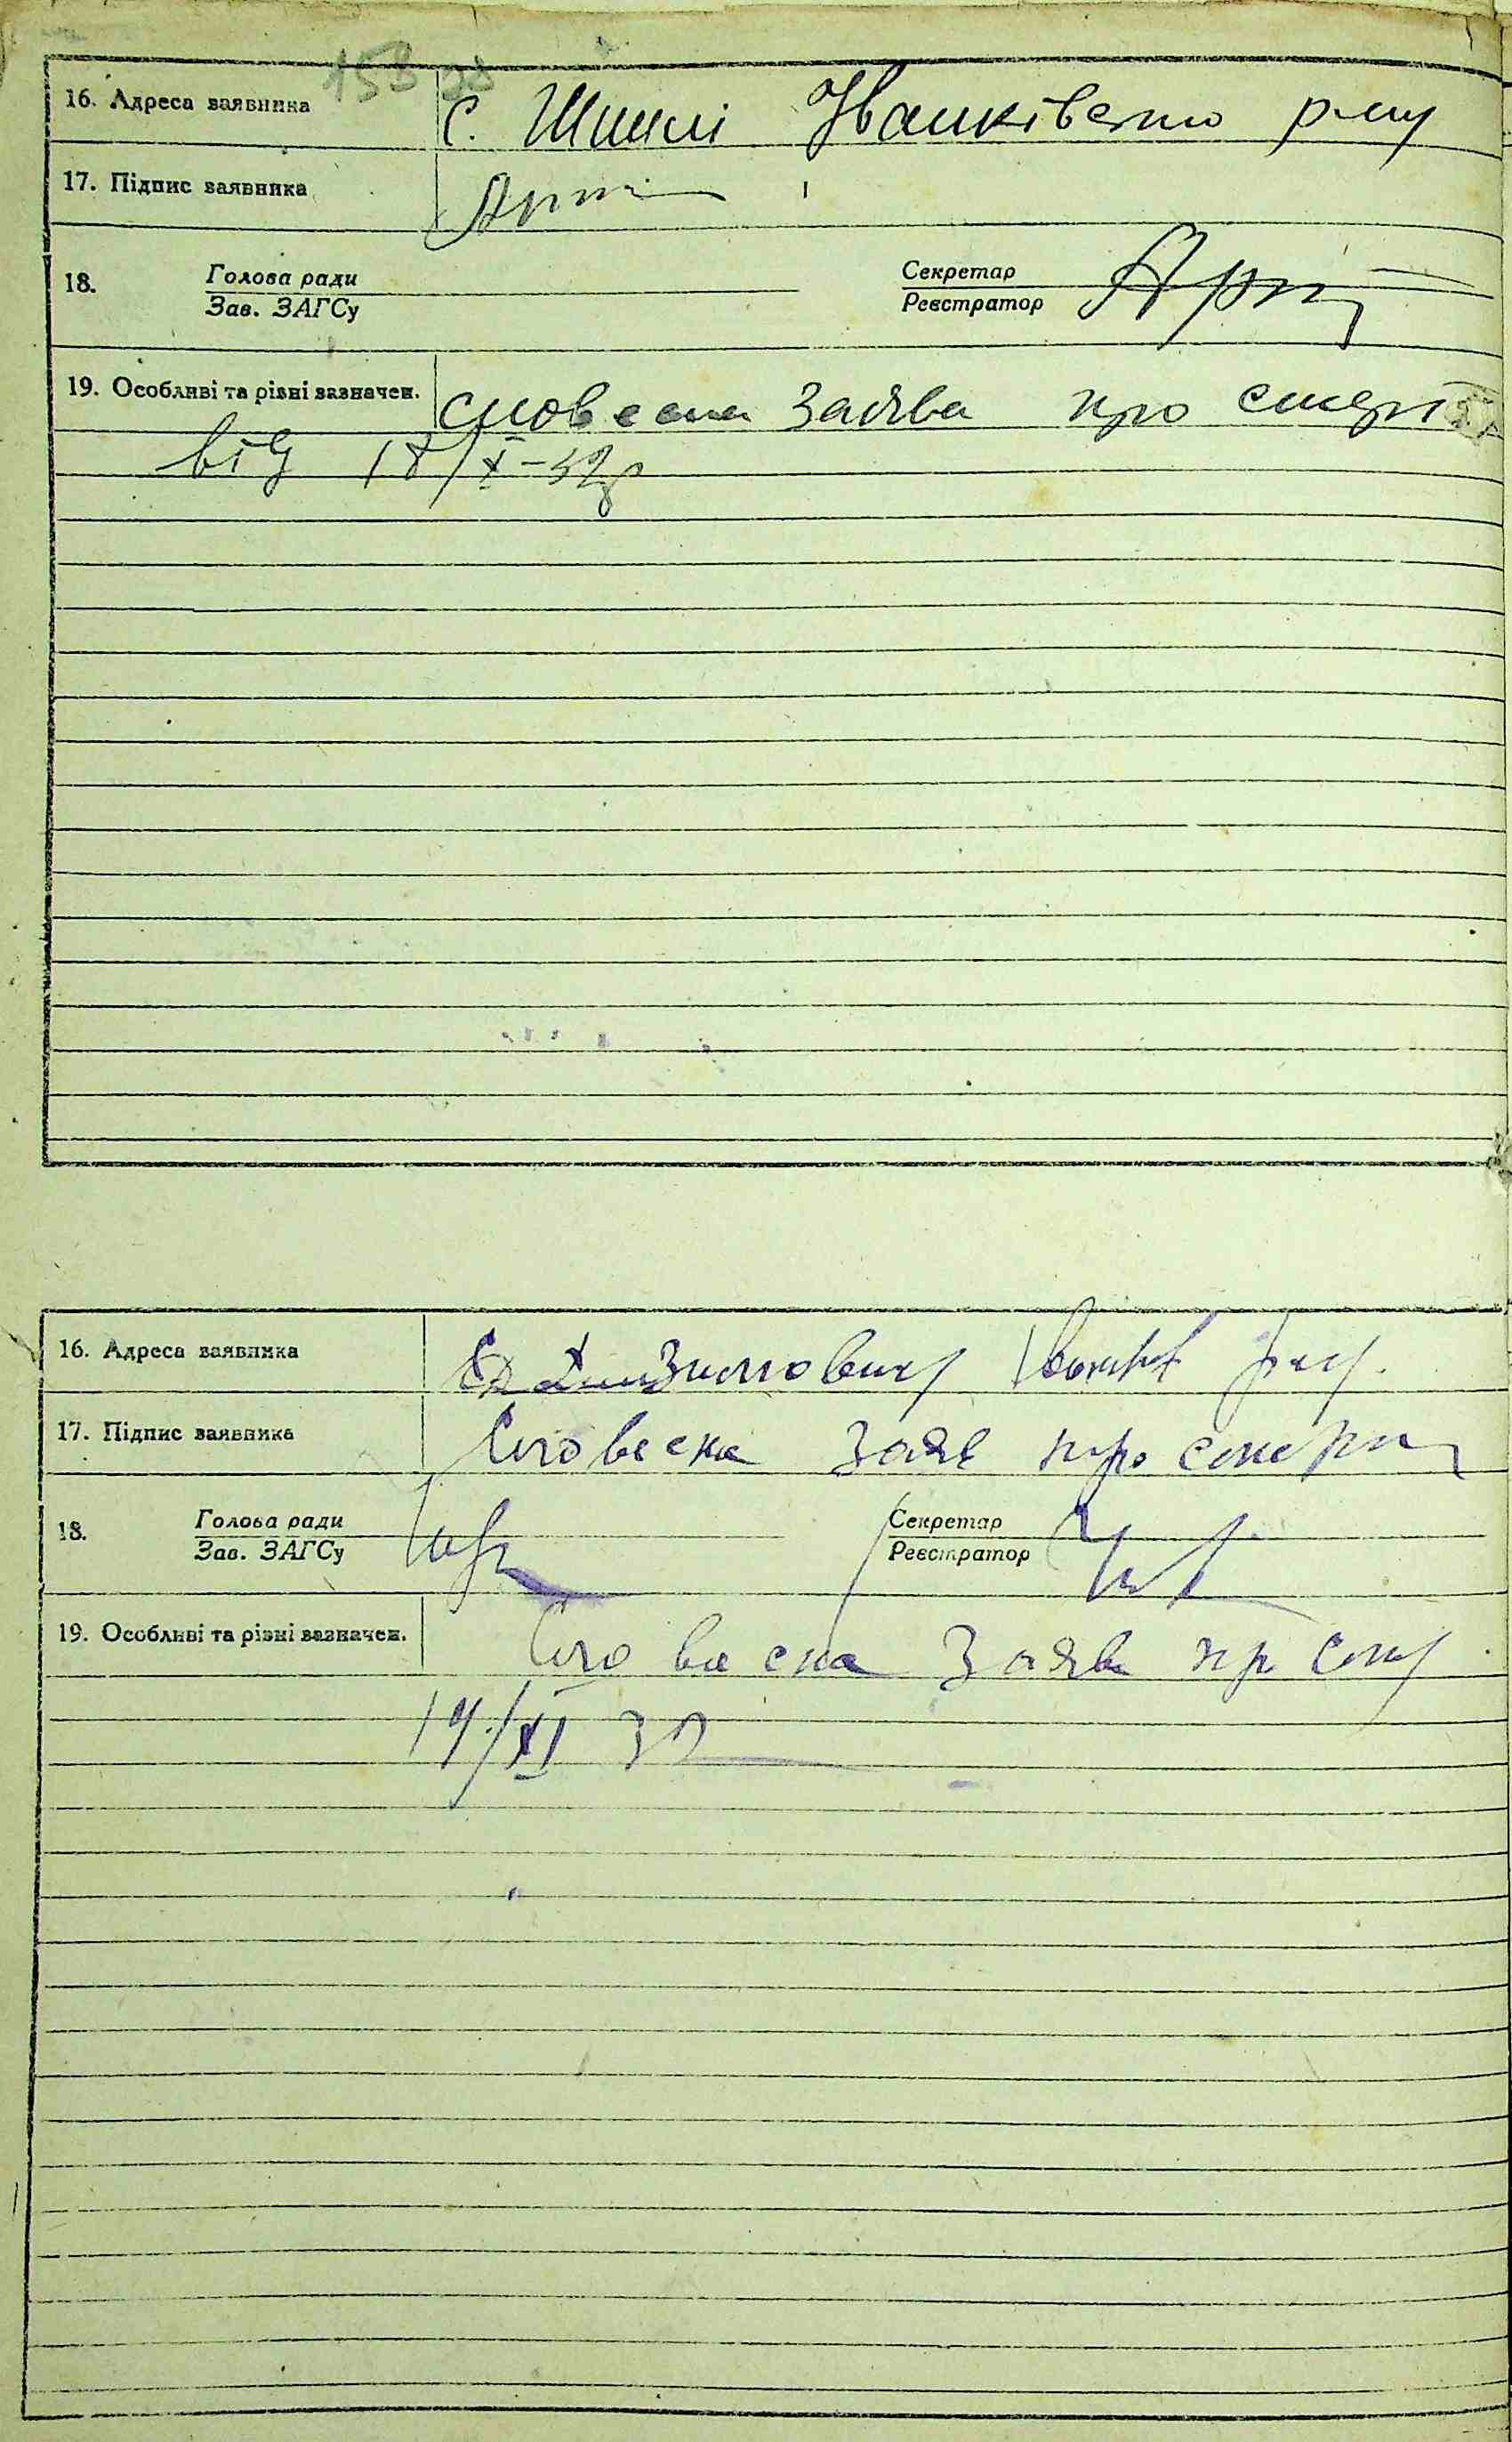 153 зв
16. Адреса заявника с. Шпилі Іванківського р-ну
17. Підпис заявника
18. Голова ради Секретар
Зав. ЗАГСу Реєстратор
19. Особливі та різні зазначен. словесна заява про смерть
від 18/X-32р
16. Адреса заявника Зимовищ р-ну
17. Підпис заявника Словесна заяв про смерть
18. Голова ради Секретар
Зав. ЗАГСу Реєстратор
19. Особливі та різні зазначен. Словесна заява пр См
19/XI 32